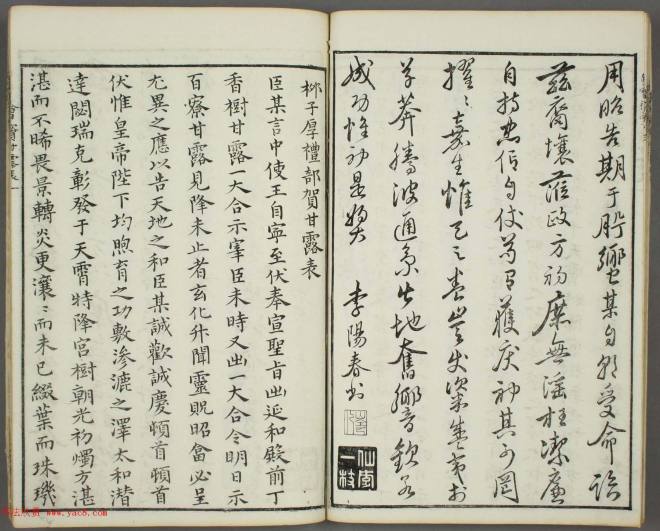 用昭告期于肸蠁某自朝受命臨
茲裔壤蒞政方初庶無淫枉潔廉
自持忠信自仗苟有獲戾神其可罔
擢〻嘉生惟天之養豈使粢盛夷於
草莽騰波通氣出地奮響欽若
成功惟神是奬 李陽春書
柳子厚禮部賀甘露表
臣某言中使王自寧至伏奉宣聖旨出延和殿前丁
香樹甘露一大合示宰臣未時又出一大合令明日示
百寮甘露見降未止者玄化升聞靈貺昭富必呈
尤異之應以告天地之和臣某誠歡誠慶頓首頓首
伏惟皇帝陛下均煦育之功敷滲漉之澤太和潛
達閟瑞克彰發于天霄特降宮樹朝光初燭方湛
湛而不晞畏景轉炎更瀼〻而未已綴葉而珠璣
书法欣赏 www.yac8.com